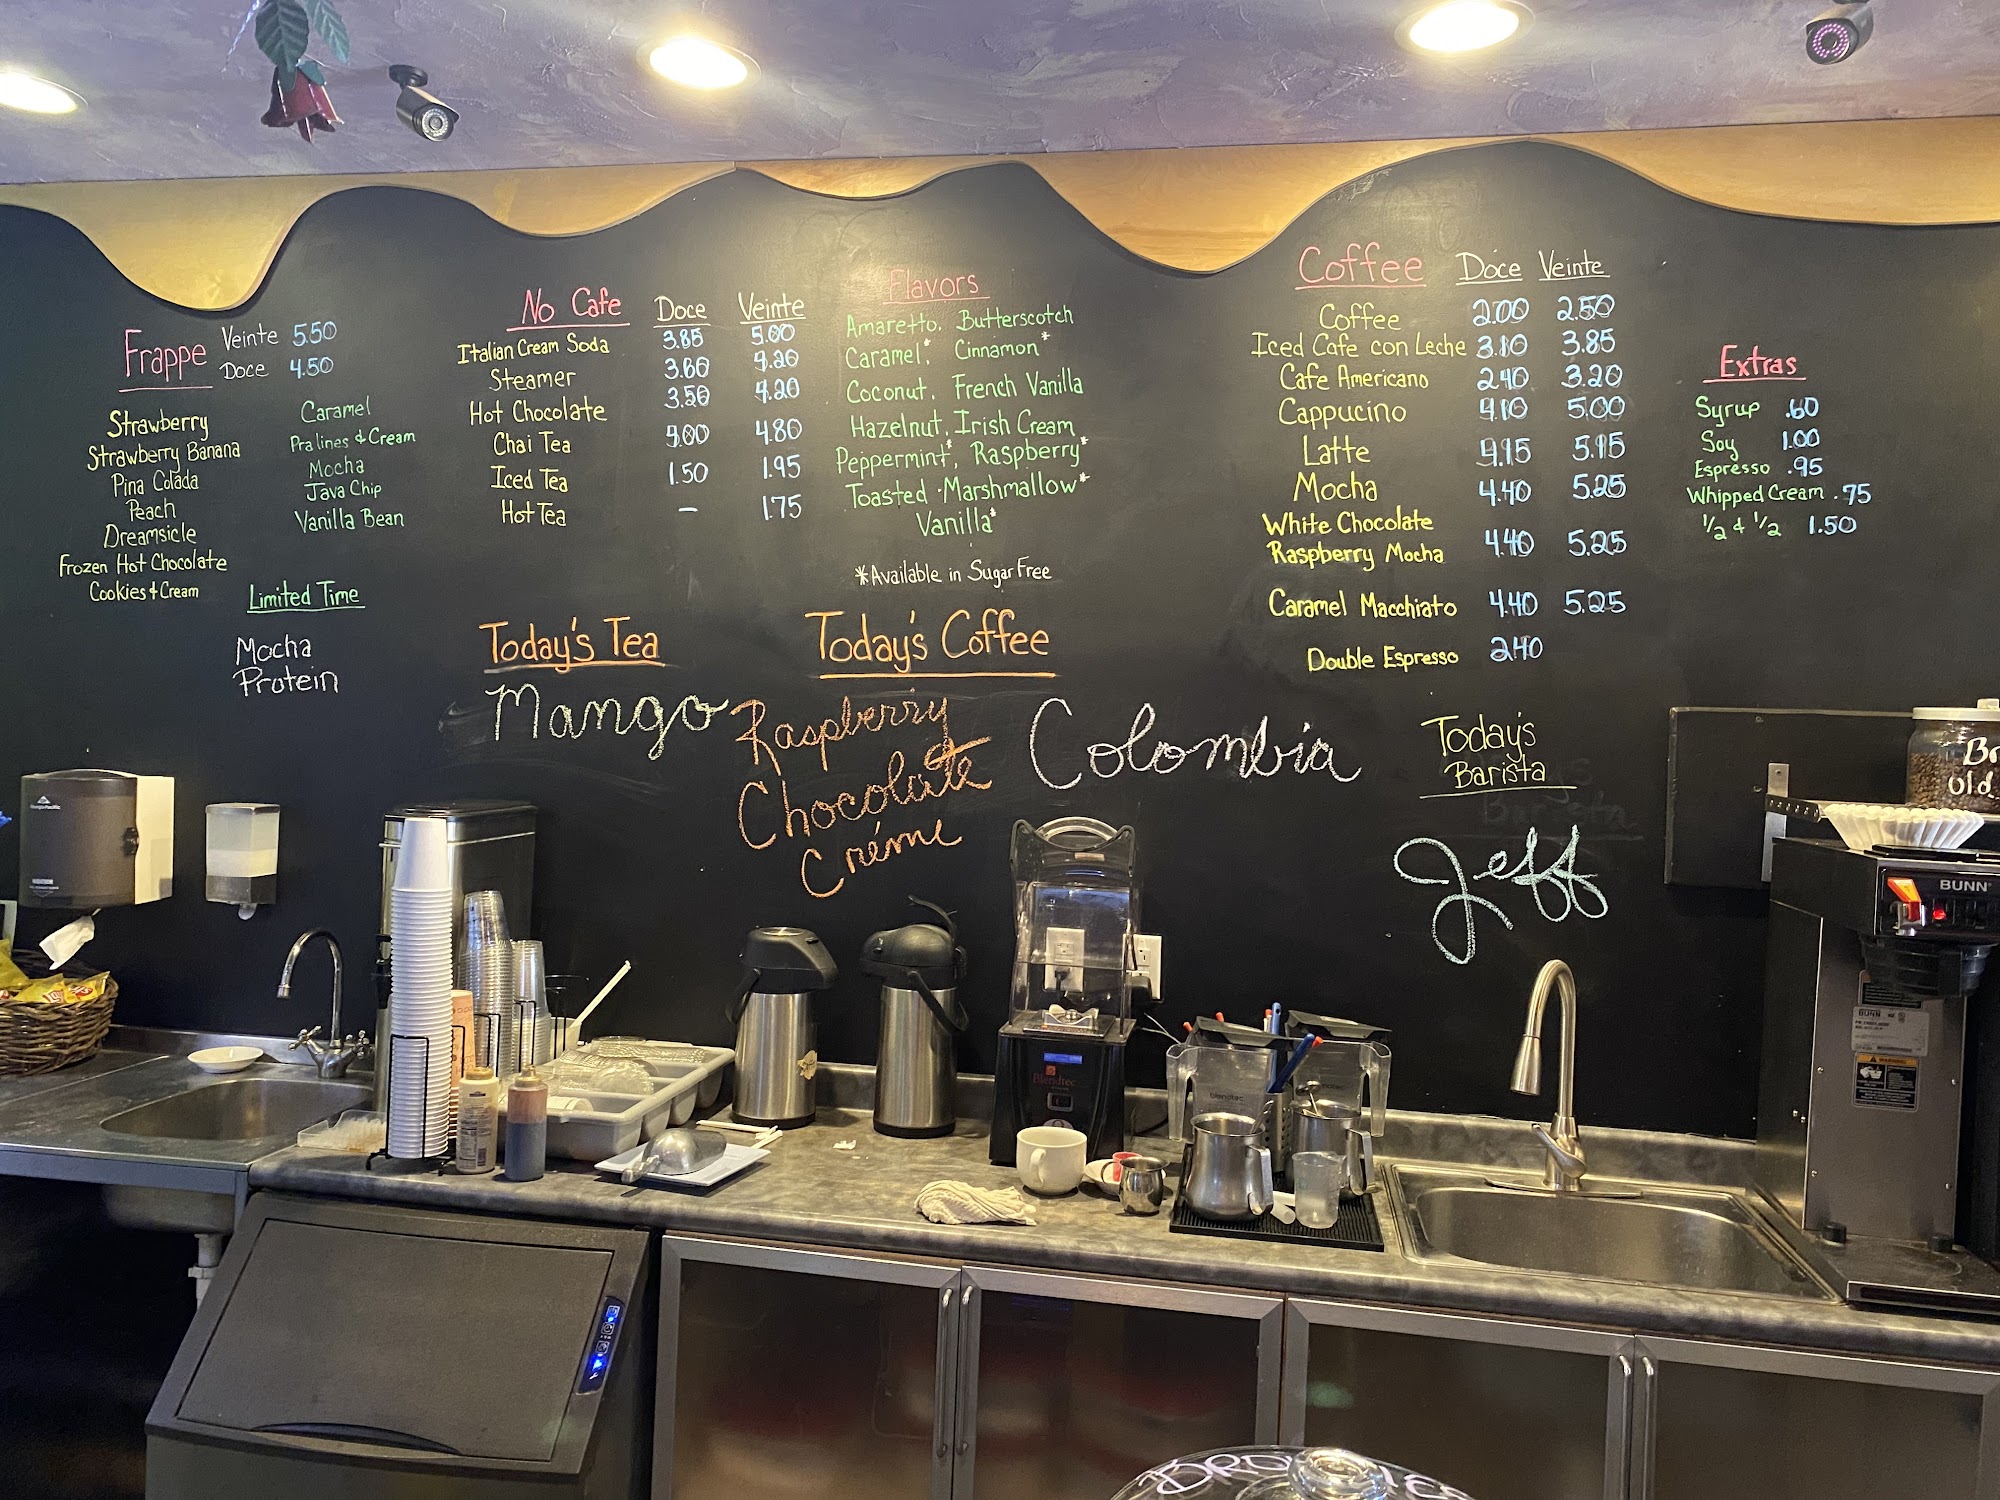 Frappe
Veinte 5.50
Doce 4.50
Strawberry
Strawberry Banana
Pina Colada
Peach
Dreamsicle
Frozen Hot Chocolate
Cookies & Cream
Caramel
Pralines & Cream
Mocha
Java Chip
Vanilla Bean
Limited Time
Mocha
Protein
No Cafe Doce Veinte
Italian Cream Soda 3.85 5.00
Steamer 3.60 4.20
Hot Chocolate 3.50 4.20
Chai Tea 4.00 4.80
Iced Tea 1.50 1.95
Hot Tea — 1.75
Flavors
Amaretto, Butterscotch
Caramel,* Cinnamon*
Coconut, French Vanilla
Hazelnut, Irish Cream
Peppermint,* Raspberry*
Toasted Marshmallow*
Vanilla*
*Available in Sugar Free
Today's Tea
Mango
Today's Coffee
Raspberry
Chocolate
Créme
Colombia
Coffee Doce Veinte
Coffee 2.00 2.50
Iced Cafe con Leche 3.10 3.85
Cafe Americano 2.40 3.20
Cappucino 4.10 5.00
Latte 4.15 5.15
Mocha 4.40 5.25
White Chocolate
Raspberry Mocha 4.40 5.25
Caramel Macchiato 4.40 5.25
Double Espresso 2.40
Extras
Syrup .60
Soy 1.00
Espresso .95
Whipped Cream .75
1/2 & 1/2 1.50
Today's
Barista
Jeff
Old
BUNN
BUNN
WARNING
Blendtec
blendtec